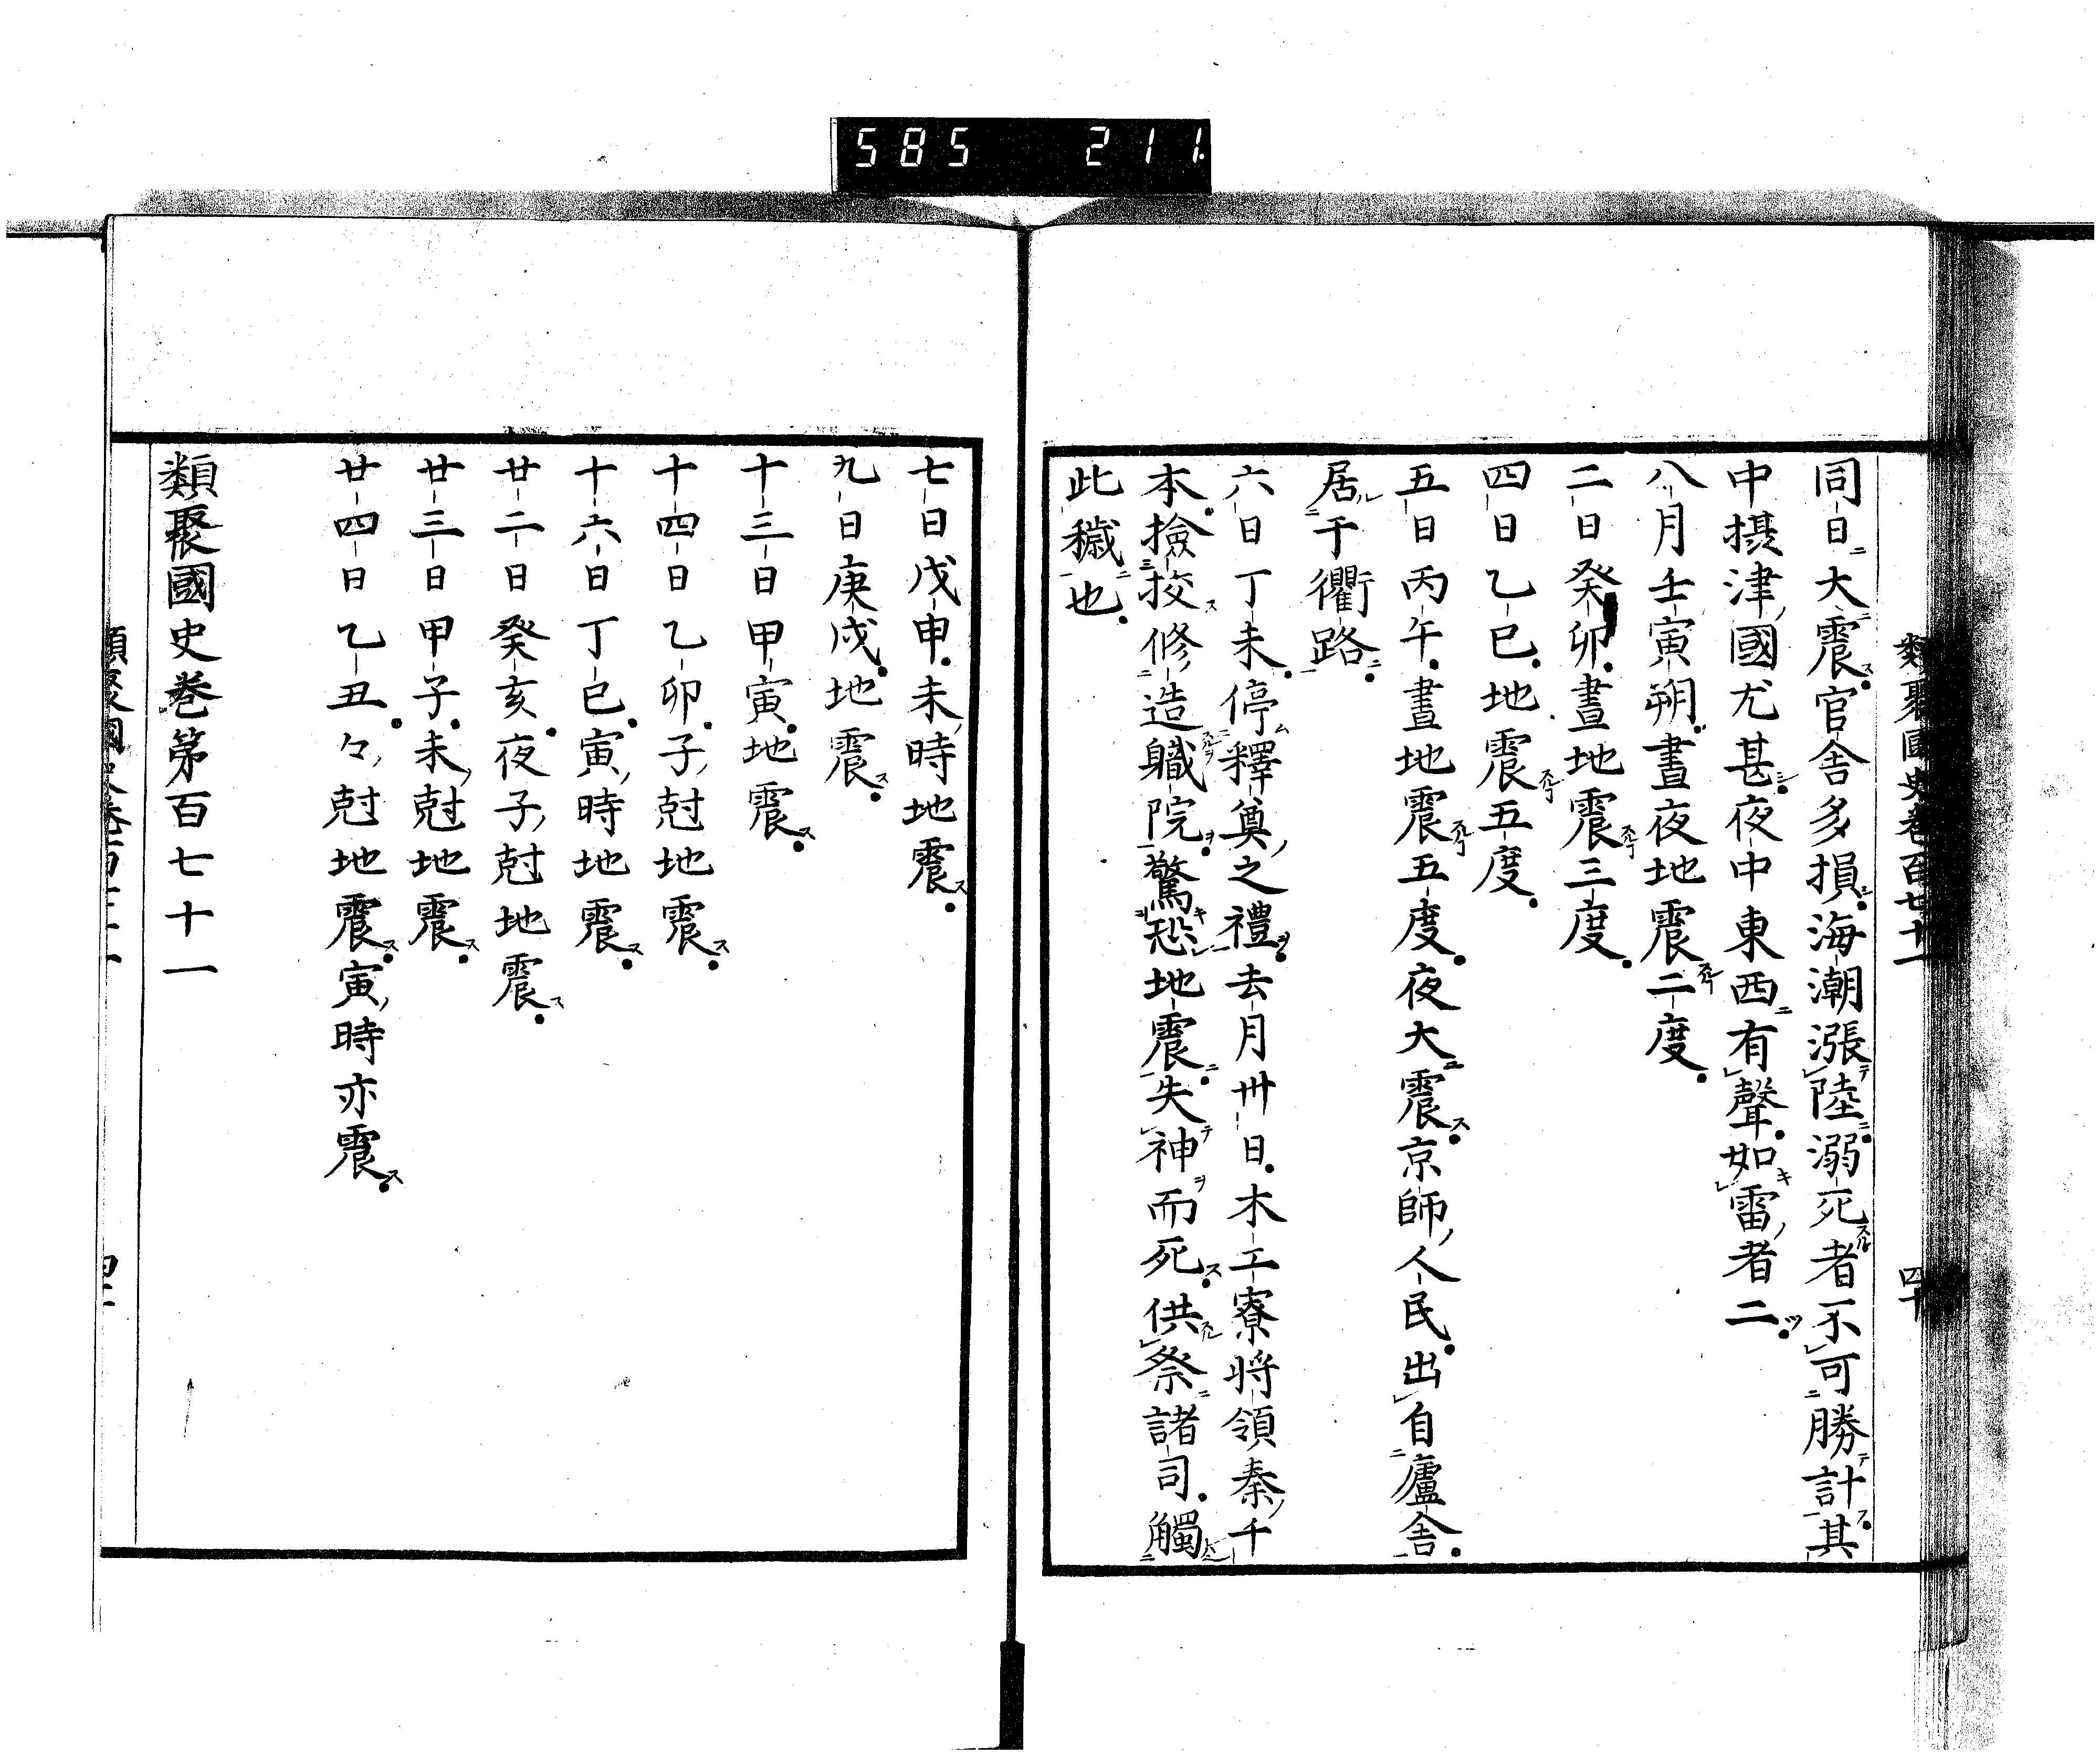 585 211
類聚國史卷百七十一 四十
同日大震官舎多損海潮漲陸溺死者不可勝計其
中摂津國尤甚夜中東西有聲如雷者二
八月壬寅朔晝夜地震二度
二日癸卯晝地震三度
四日乙巳地震五度
五日丙午晝地震五度夜大震京師人民出自廬舎
居于衢路
六日丁未停釋奠之禮去月卅日木工寮将領秦千
本撿挍修造職院驚恐地震失神而死供祭諸司觸
此穢也
七日戊申未時地震
九日庚戌地震
十三日甲寅地震
十四日乙卯子尅地震
十六日丁巳寅時地震
廿二日癸亥夜子尅地震
廿三日甲子未尅地震
廿四日乙丑々尅地震寅時亦震
類聚國史卷第百七十一